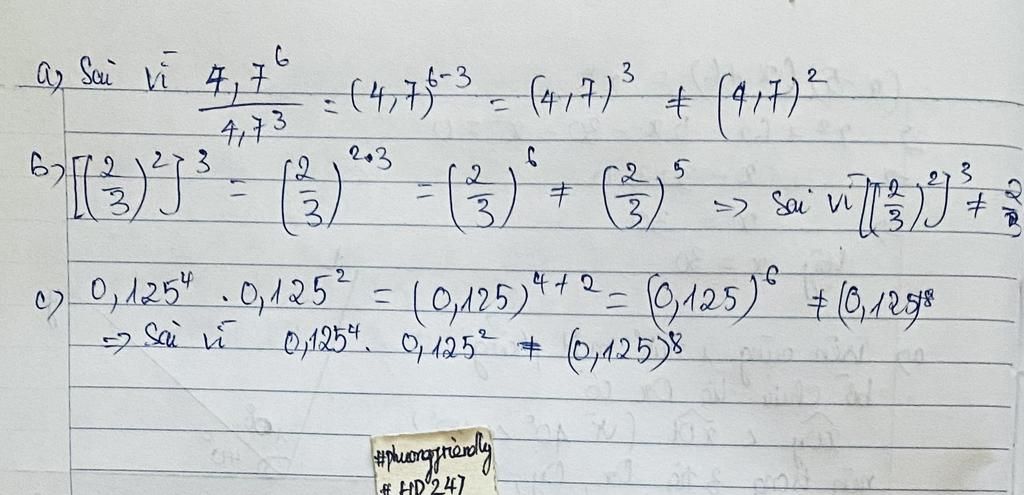 a) Sai vì 4,7^6 / 4,7^3 = (4,7)^{6-3} = (4,7)^3 ≠ (4,7)^2
b) [(2/3)^2]^3 = (2/3)^{2.3} = (2/3)^6 ≠ (2/3)^5 => Sai vì [(2/3)^2]^3 ≠ 2/3
c) 0,125^4 . 0,125^2 = (0,125)^{4+2} = (0,125)^6 ≠ (0,125)^8
=> Sai vì 0,125^4 . 0,125^2 ≠ (0,125)^8
#phuongfriendly
# HD247